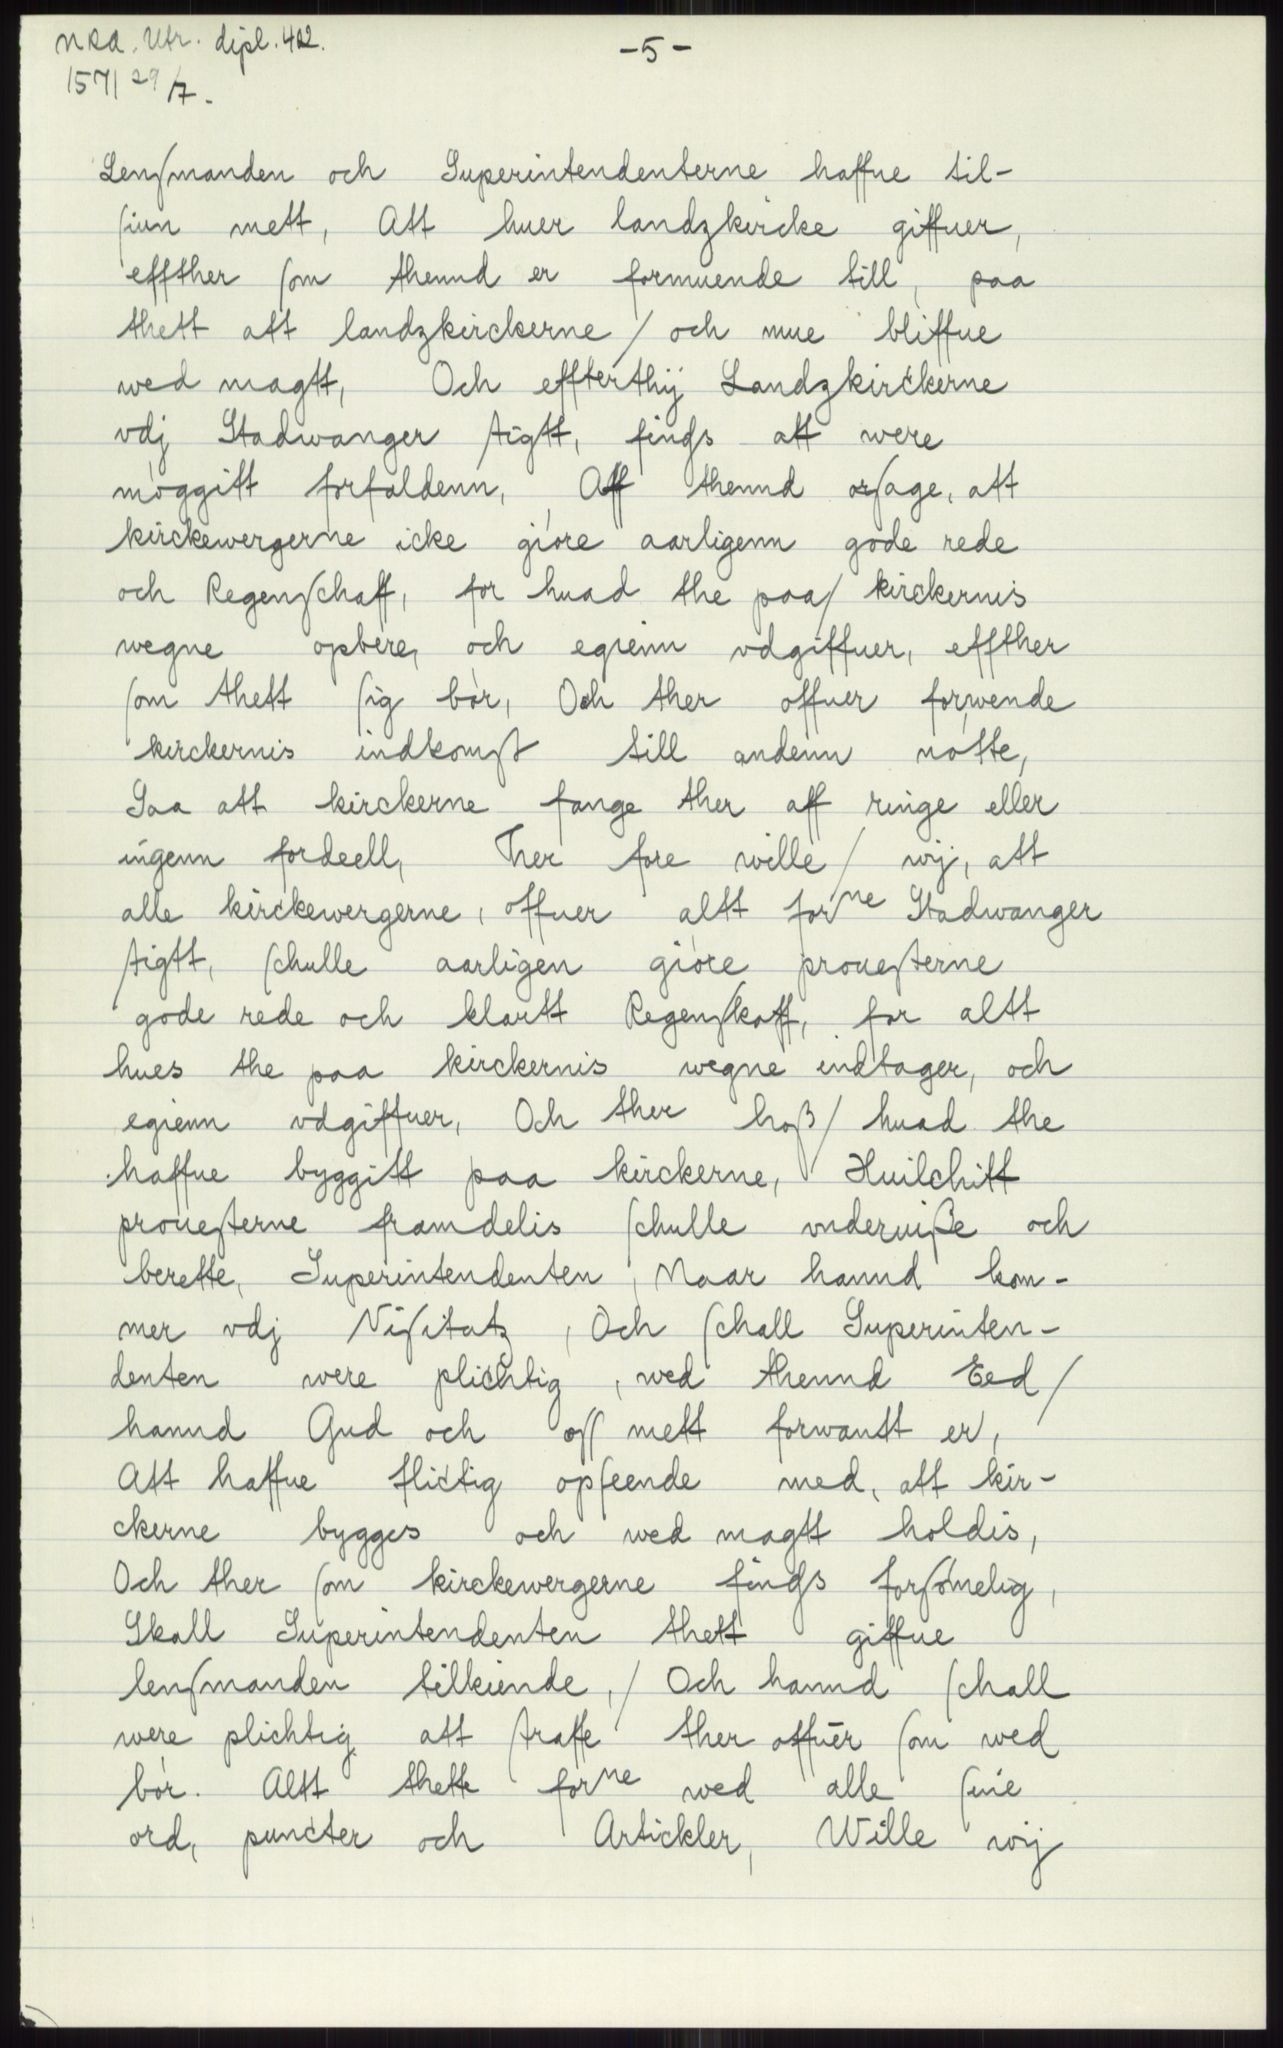 NRA. Utr. dipl. 402.
-5-
1571 29/7.
Lenſmanden och Superintendenterne haffue til-
ſiun mett, Att huer landzkircke giffuer,
effther ſom thennd er formuende till, paa
thett att landzkirckerne / och mue bliffue
wed magtt, Och effterthij Landzkirckerne
vdj Stadwanger ſtigtt, findſs att were
möggitt forfaldenn, Aff thennd orſage, att
kirckewergerne icke giöre aarligenn gode rede
och Regenſchaff, for huad the paa / kirckernis
wegne opbere, och egienn vdgiffuer, effther
ſom thett ſig bör, Och ther offuer forwende
kirckernis indkomſt till andenn nötte,
Saa att kirckerne fange ther aff ringe eller
ingenn fordeell, Ther fore wille / wij, att
alle kirckewergerne, offuer altt forne Stadwanger
ſtigtt, ſchulle aarligen giöre proueſterne
gode rede och klartt Regenſkaff, for altt
hues the paa kirckernis wegne indtager, och
egienn vdgiffuer, Och ther hoß / huad the
haffue byggitt paa kirckerne, Huilchitt
proueſterne framdelis ſchulle vnderuiße och
berette, Superintendenten, Naar hannd kom-
mer vdj Viſitatz, Och ſchall Superinten-
denten were plichtig, wed thennd Eed /
hannd Gud och oſſ mett forwantt er,
Att haffue flictig opſeende med, att kir-
ckerne bygges och wed magtt holdis,
Och ther ſom kirckewergerne findſs forſömelig,
Skall Superintendenten thett giffue
lenſmanden tilkiende, / Och hannd ſchall
were plichtig att ſtraffe ther offuer ſom wed
bör. Altt thette forne wed alle ſine
ord, puncter och Artickler, Wille wij